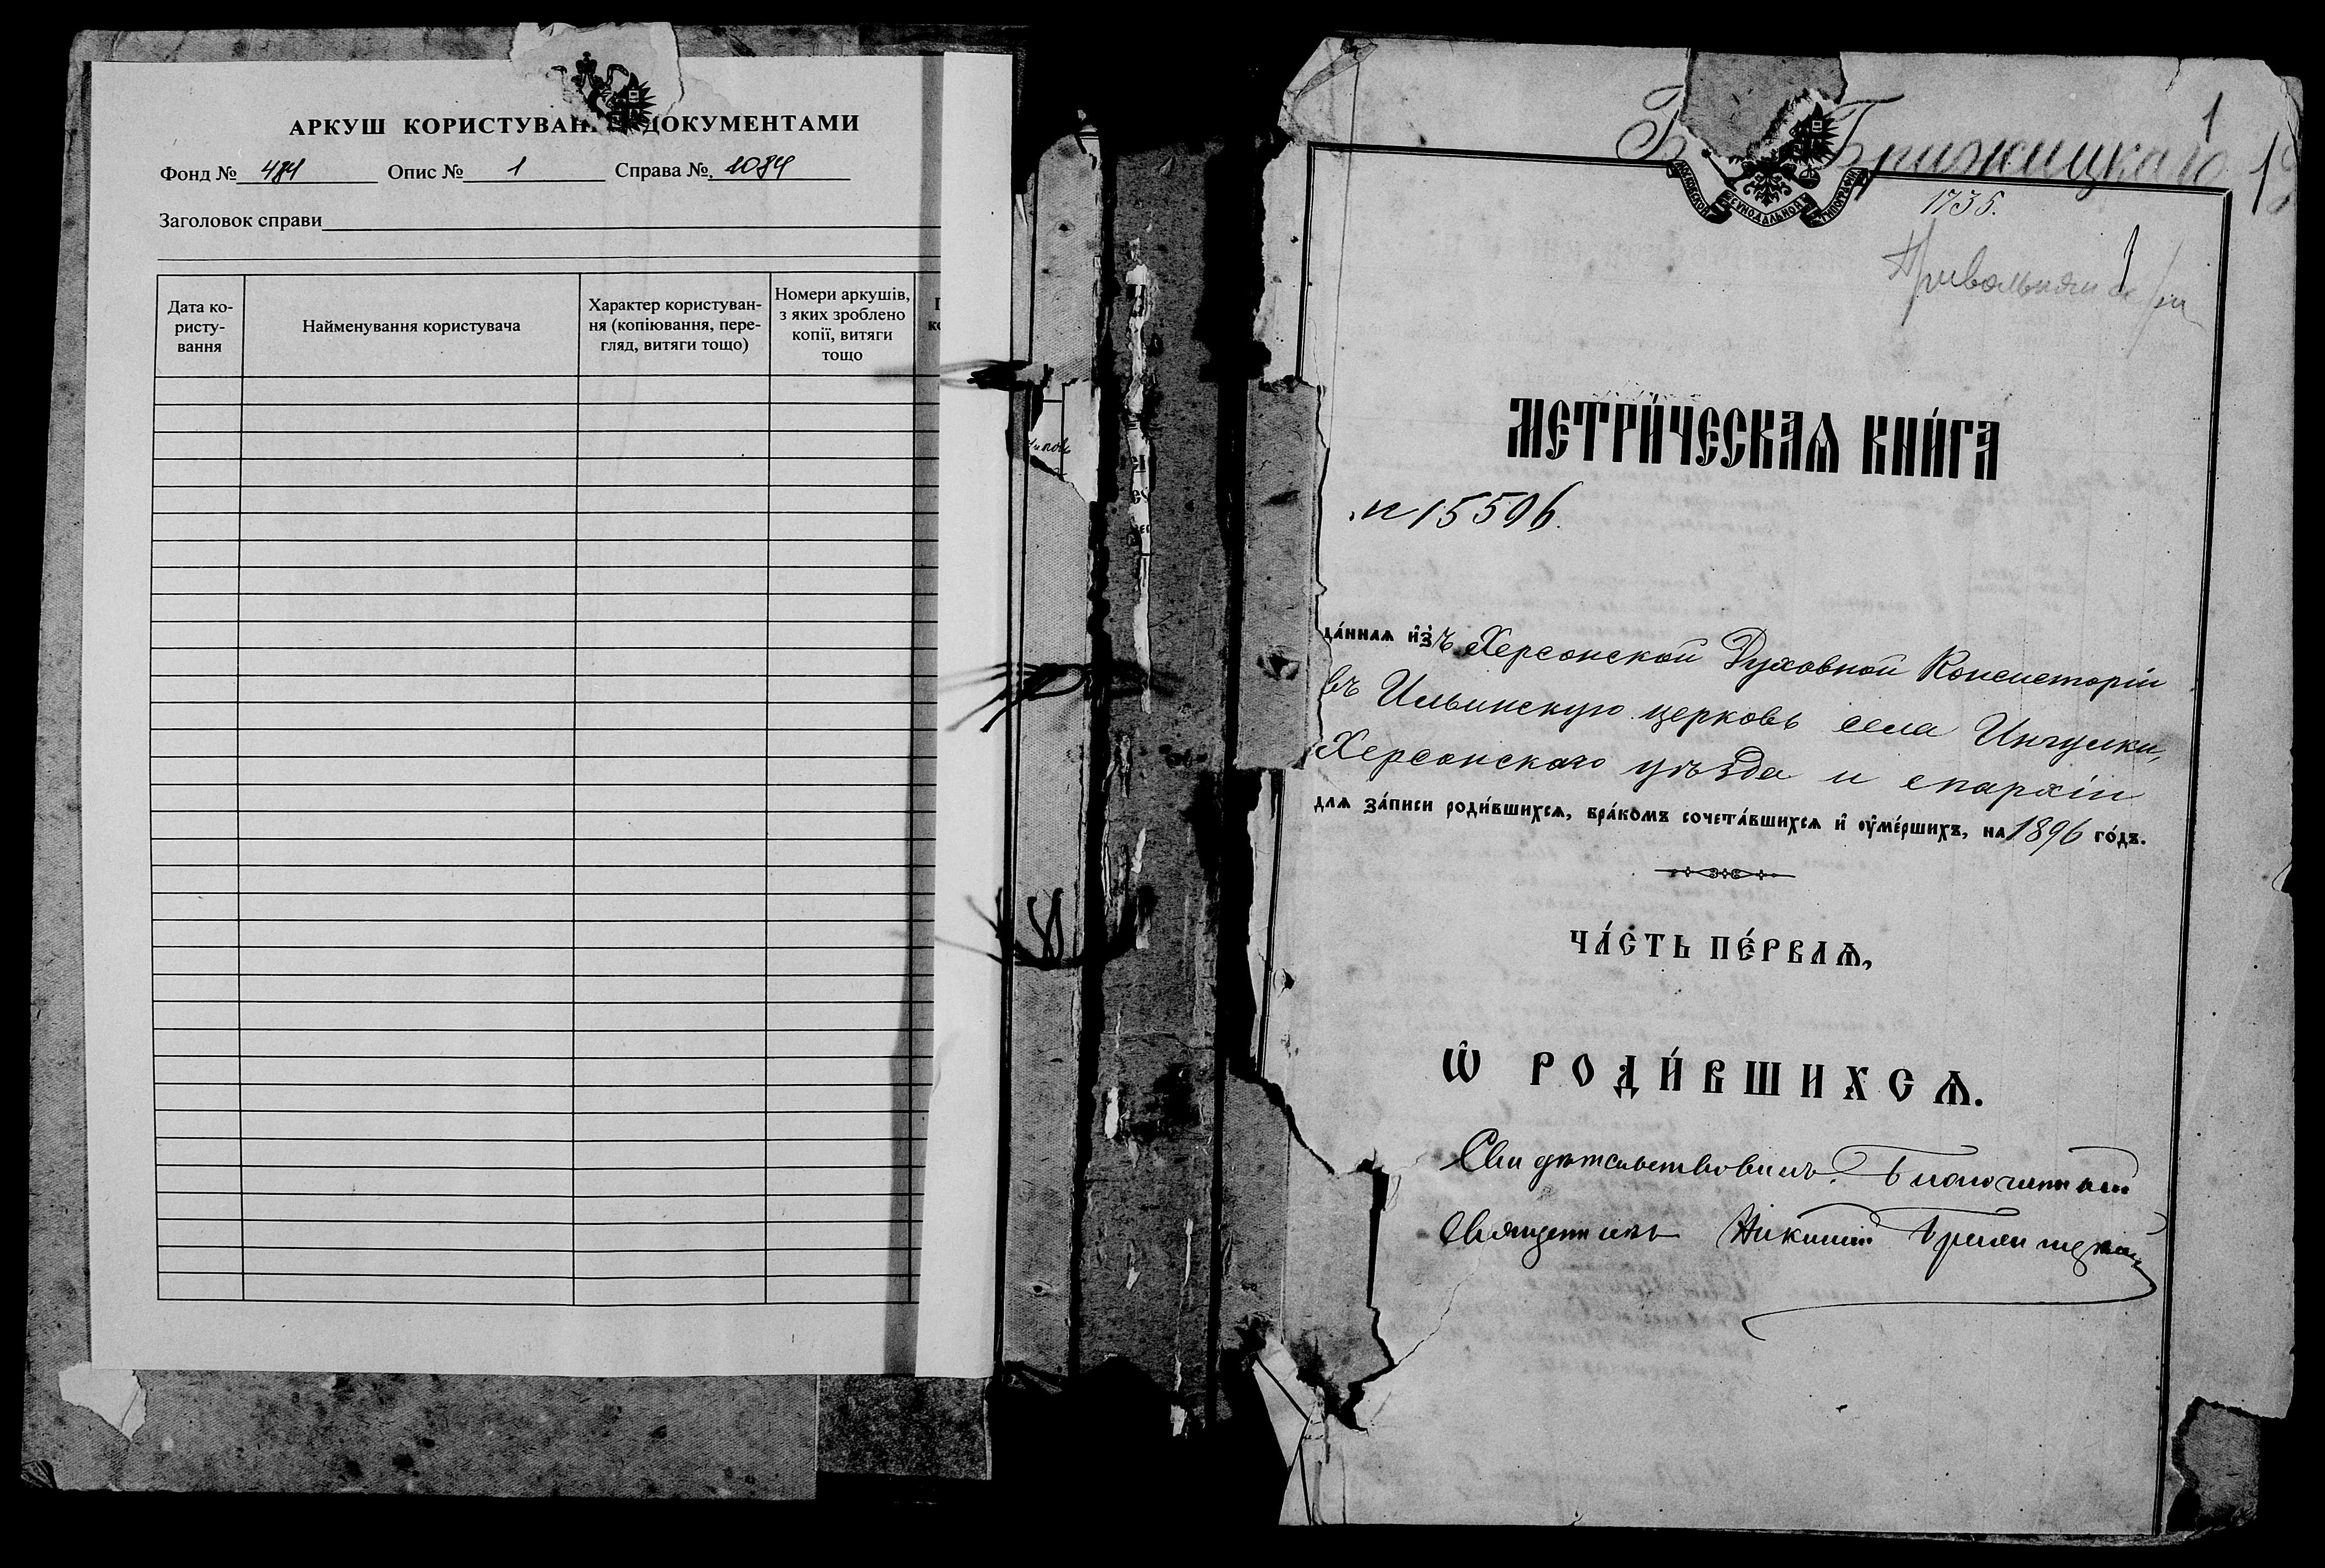 АРКУШ КОРИСТУВАН ДОКУМЕНТАМИ
Фонд № 484 Опис № 1 Справа №
Заголовок справи
Дата ко-
ристу-
вання
Найменування користувача
Характер користуван-
ня (копіювання, пере-
гляд, витяги тощо)
Номери аркушів,
з яких зроблено
копії, витяги
тощо
1
Брижицкаго
МОСКОВСКОЙ СѴНОДАЛЬНОЙ ТИПОГРАФІИ
1735.
МЕТРИ́ЧЕСКАѦ КНИ́ГА
№ 15596.
да́ннаѧ и҆зъ Херсонской Духовной Консисторіи
въ Ильинскую церковь села Ингулки,
Херсонскаго уѣзда и епархіи
длѧ за́писи роди́вшихсѧ, бра́комъ сочета́вшихсѧ и҆ ᲂу҆ме́ршихъ, на 1896 го́дъ.
ЧА́СТЬ ПЕ́РВАѦ,
Ѡ҆ РОДИ́ВШИХСѦ.
Свидѣтельствовалъ Благочинный
Священникъ Никита Брижицкій